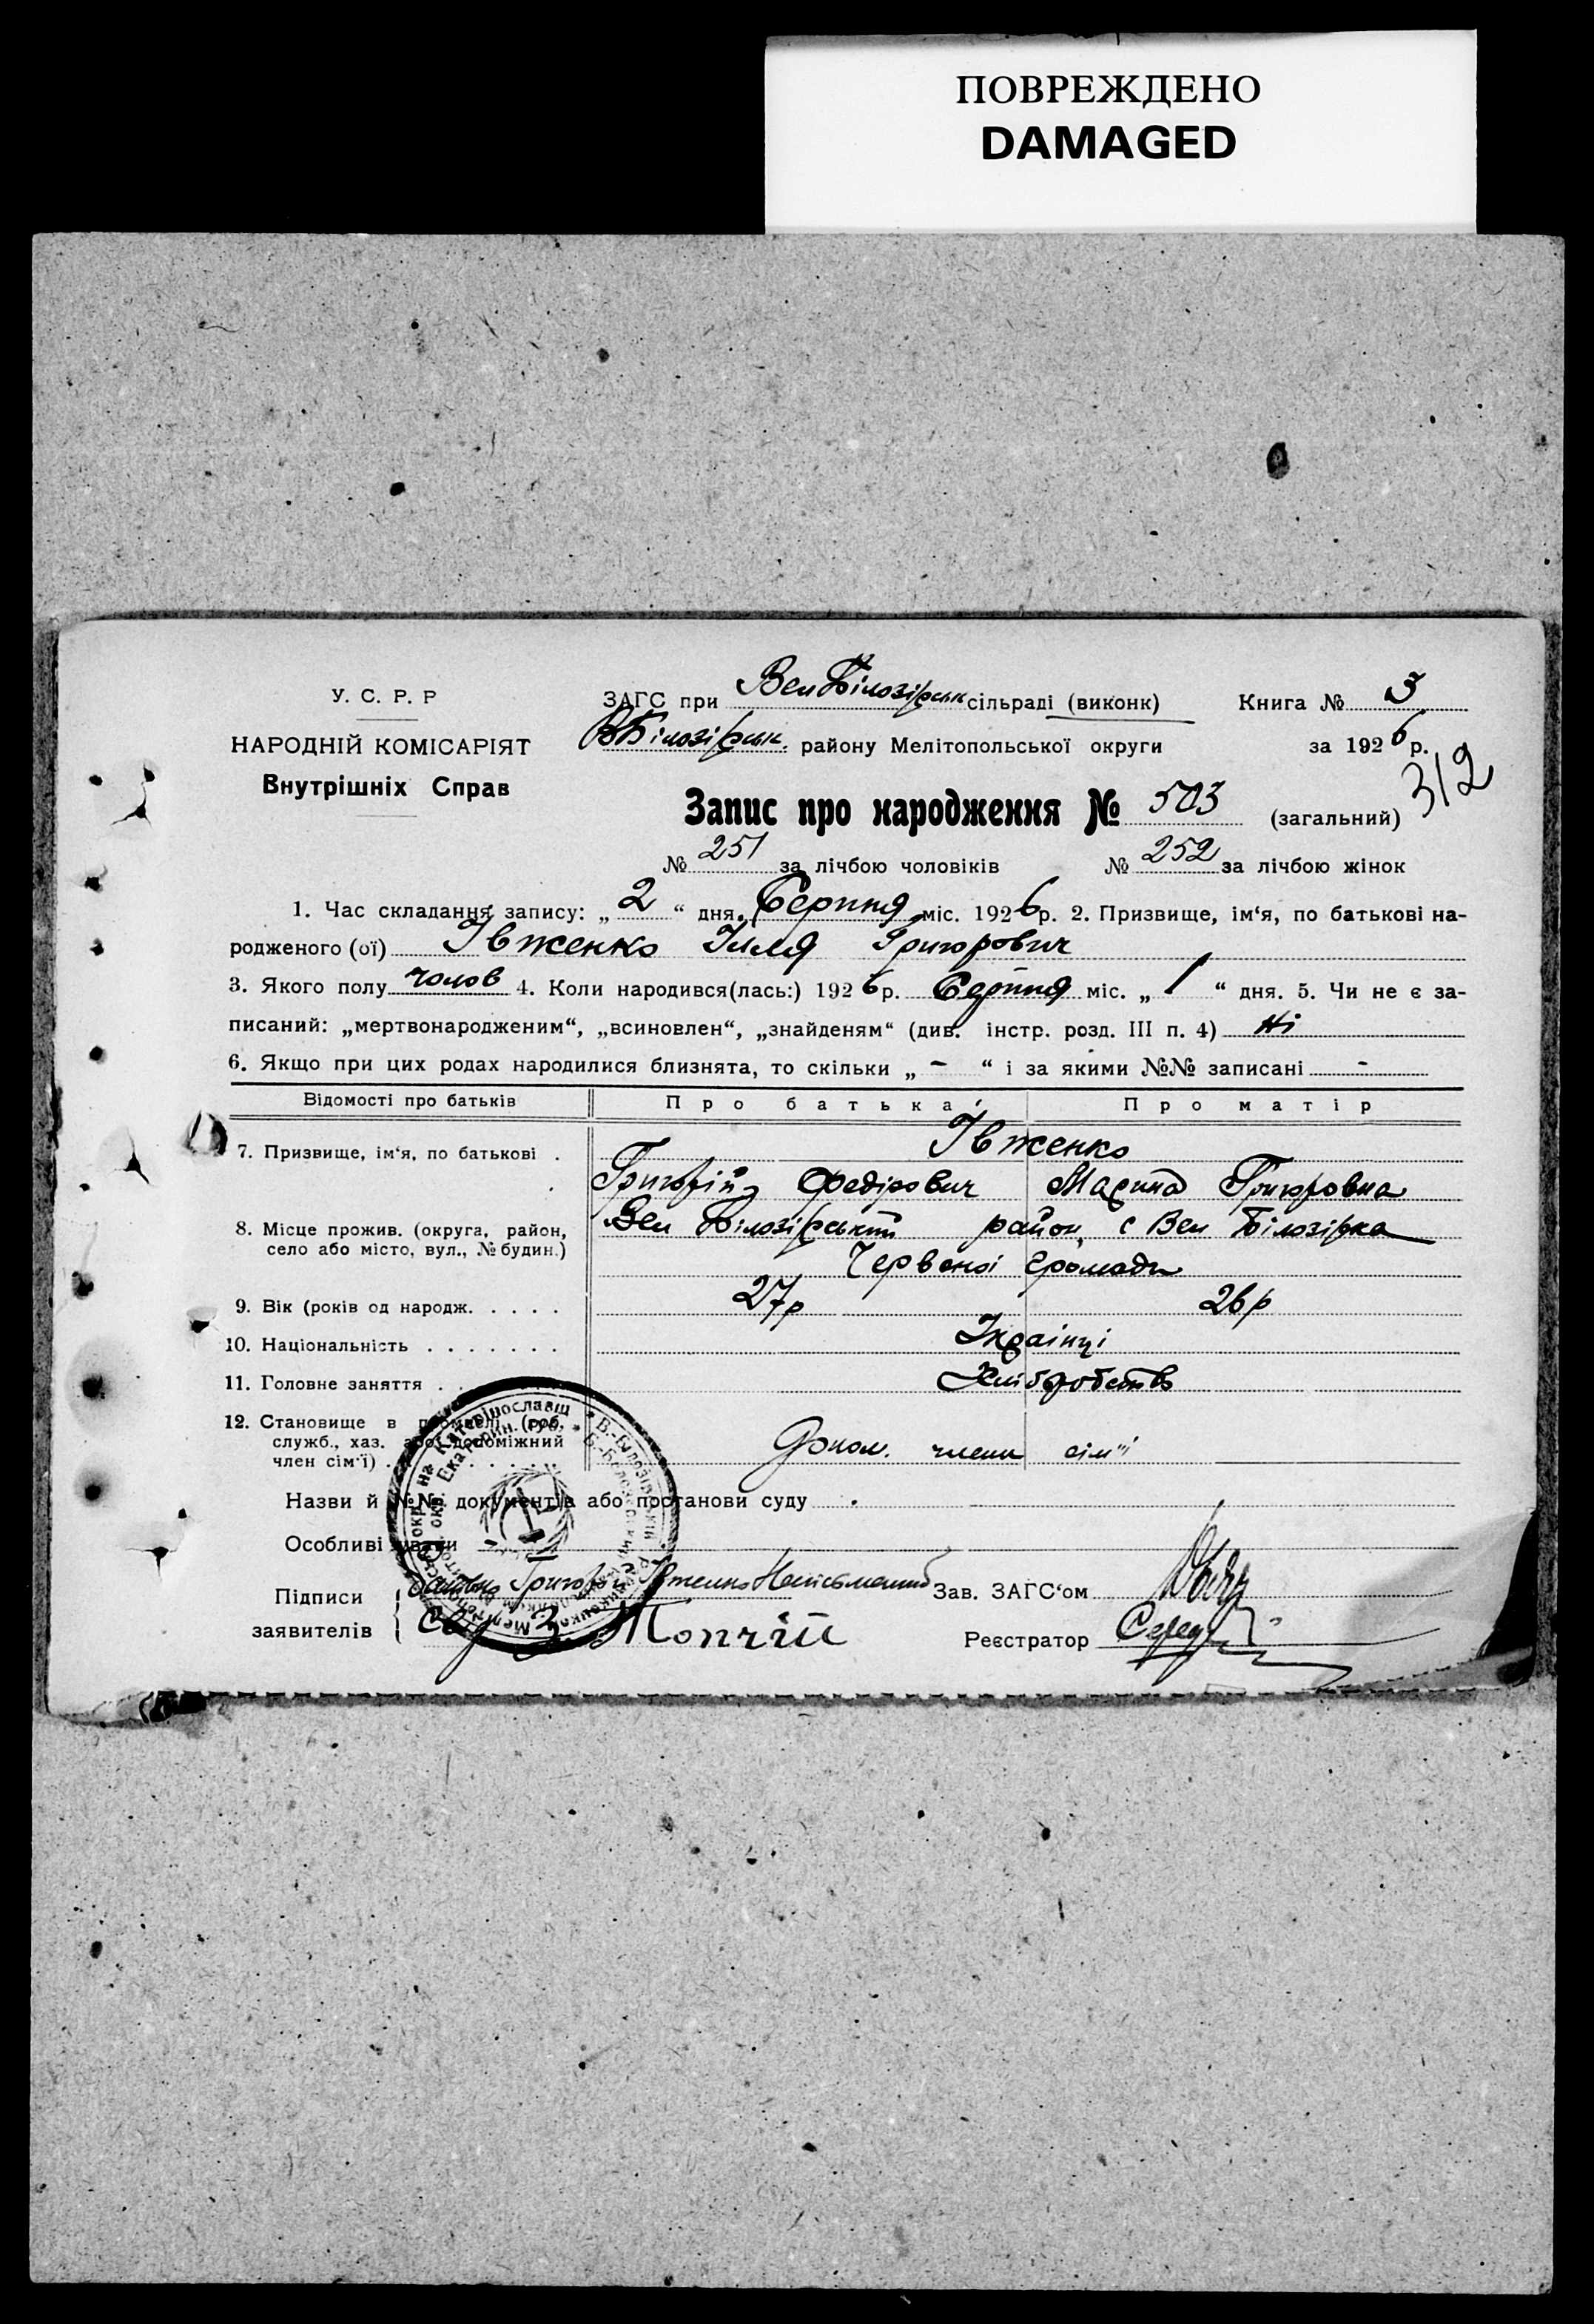 ПОВРЕЖДЕНО
DAMAGED
У. С. Р. Р
НАРОДНІЙ КОМІСАРІЯТ
Внутрішніх Справ
ЗАГС при Вел Білозірськ сільраді (виконк) Книга № 3
ВБілозірськ. району Мелітопольської округи за 1926 р.
312
Запис про народження № 503 (загальний)
№ 251 за лічбою чоловіків № 252 за лічбою жінок
1. Час складання запису: „ 2 “ дня Серпня міс. 1926 р. 2. Призвище, ім‘я, по батькові на-
родженого (ої) Івженко Ілля Григорович
3. Якого полу чолов 4. Коли народився(лась:) 1926 р. Серпня міс. „ 1 “ дня. 5. Чи не є за-
писаний: „мертвонародженим“, „всиновлен“, „знайденям“ (див. інстр. розд. III п. 4) Ні
6. Якщо при цих родах народилися близнята, то скільки „ - “ і за якими №№ записані -
Відомості про батьків Про батька Про матір
7. Призвище, ім‘я, по батькові . Івженко
Григорій Федірович Марина Григоровна
8. Місце прожив. (округа, район, село або місто, вул., № будин.) Вел Білозірський район, с Вел Білозірка
Червоної Громади
9. Вік (років од народж. . . . . 27р 26р
10. Національність . . . . . . . Українці
11. Головне заняття . . Хліборобство
12. Становище в промислі (роб.
служб., хаз. або допоміжний
член сім‘ї) . . . . . . . члени сім'ї
Назви й №№ документів або постанови суду
Особливі уваги -
Підписи
заявителів
Батько Григорій Івженко Неписьменний
Зав. ЗАГС‘ом
Реєстратор